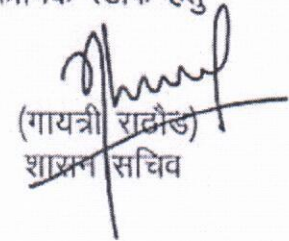 हेतु
(गायत्री राठौड)
शासन सचिव